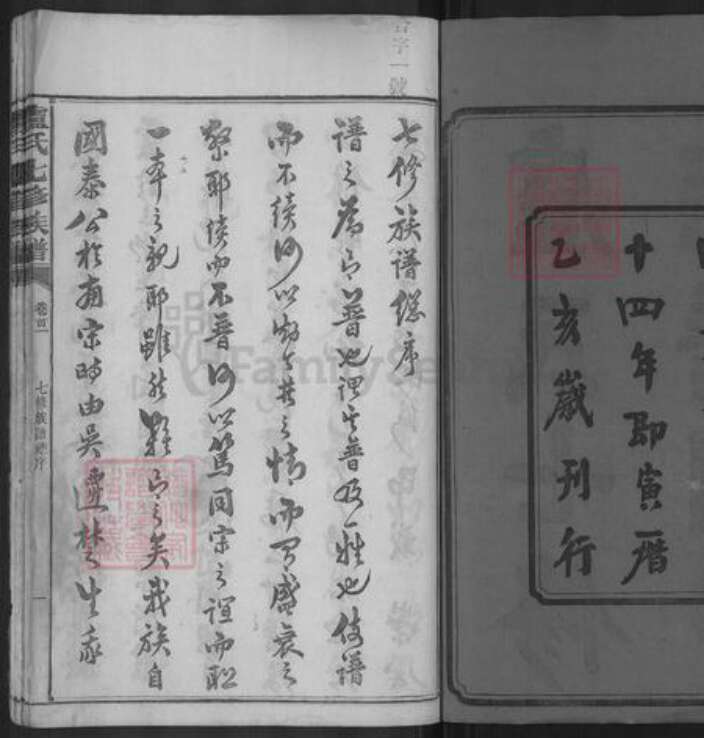 十四年即寅曆
乙亥歲刊行
吉字一號
七修族譜總序
譜之為言普也謂其普及一雅也使譜
而不續何以敘今昔之情而習盛衰之
察耶續而不普何以篤同宗之誼而聯
一本之親耶雖然難言之矣我族自
國泰公於南宋時由吳遷楚生
盧氏七修族譜
卷首
七修族譜總序
一
FamilySearch